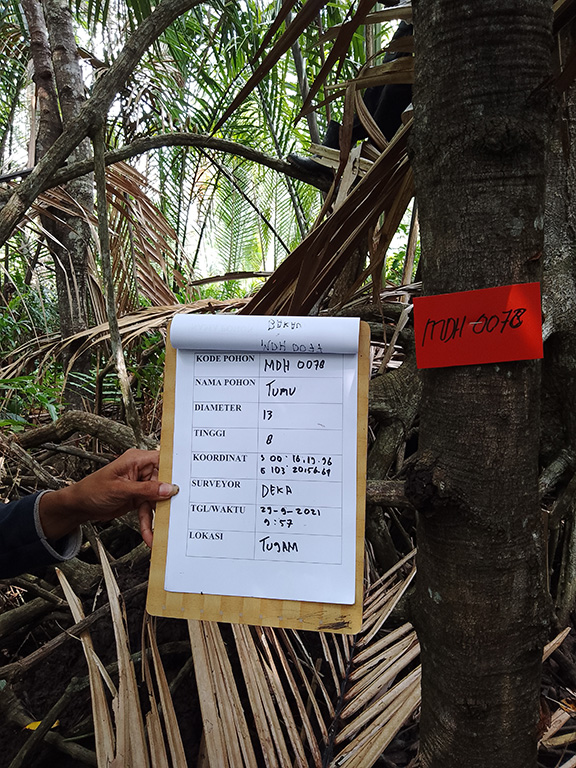 KODE POHON MDH 0078
NAMA POHON TUMU
DIAMETER 13
TINGGI 8
KOORDINAT S 00° 16.19.96
E 103° 20.56.69
SURVEYOR DEKA
TGL/WAKTU 29-9-2021
9:57
LOKASI TUJAM
MDH-0078